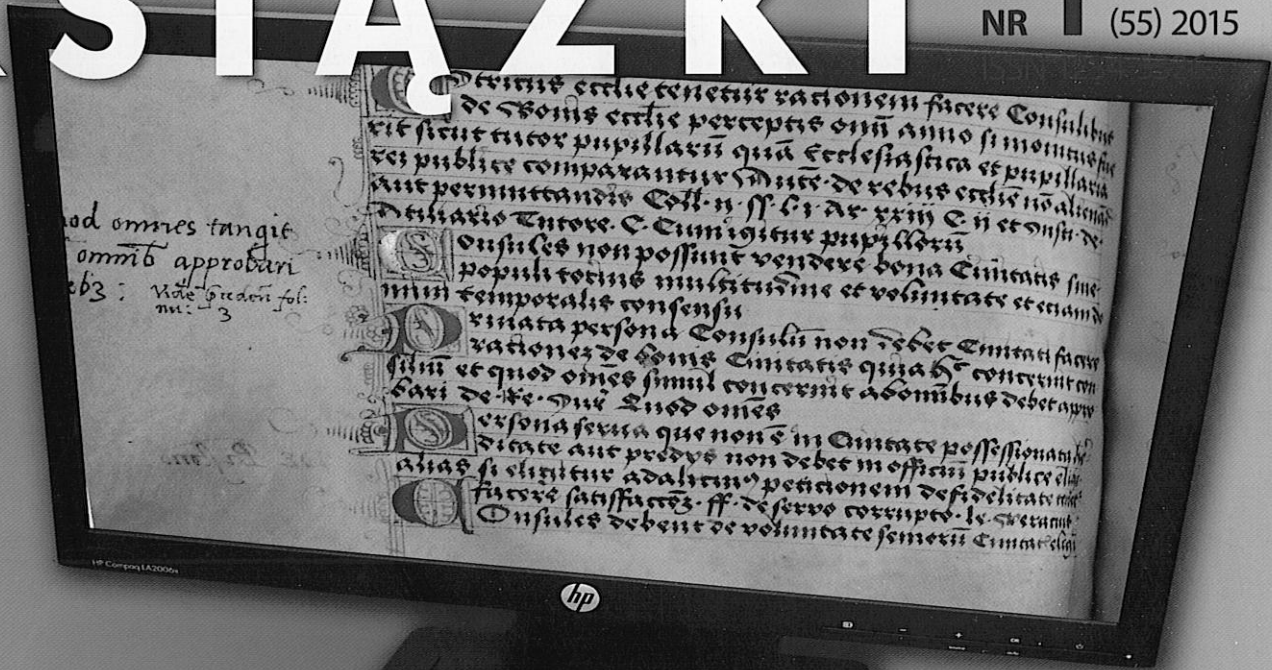 SIĄŻKI
NR 1 (55) 2015
tricus ecclie tenetur rationem facere Consulibus
de Bonis ecclie perceptis omni anno si monitus fue
rit sicut tutor pupillarū quā Ecclesiastica et pupillaria
rei publice comparantur Autē de rebus ecclie nō alienād
aut permuttandis Coll. n. ff. l. i. Ar. xxiij C. ii et Insti. de
Atiliario Tutore. C. Cum igitur pupillorū
Consules non possunt vendere bona Ciuitatis sine
populi totius multitudine et voluntate et eciam do
mini temporalis consensu
Priuata persona Consulū non debet Ciuitati facere
rationez de bonis Ciuitatis quia hoc concernit con
siliū et quod omēs simul concernit ab omibus debet appro
bari de Re. Iur. Quod omēs
Persona serua que non ē in Ciuitate possessionata
ditate aut predys non debet in officiū publice elig
alias si eligitur ad alicuius peticionem de fidelitate
facere satisfactōz. ff. de seruo corrupto. le.
Consules debent de voluntate seniorū Ciuitat eligi
uod omnes tangit
omnib approbari
ebz : Vide fol:
nu: 3
HP Compaq LA2006x
hp